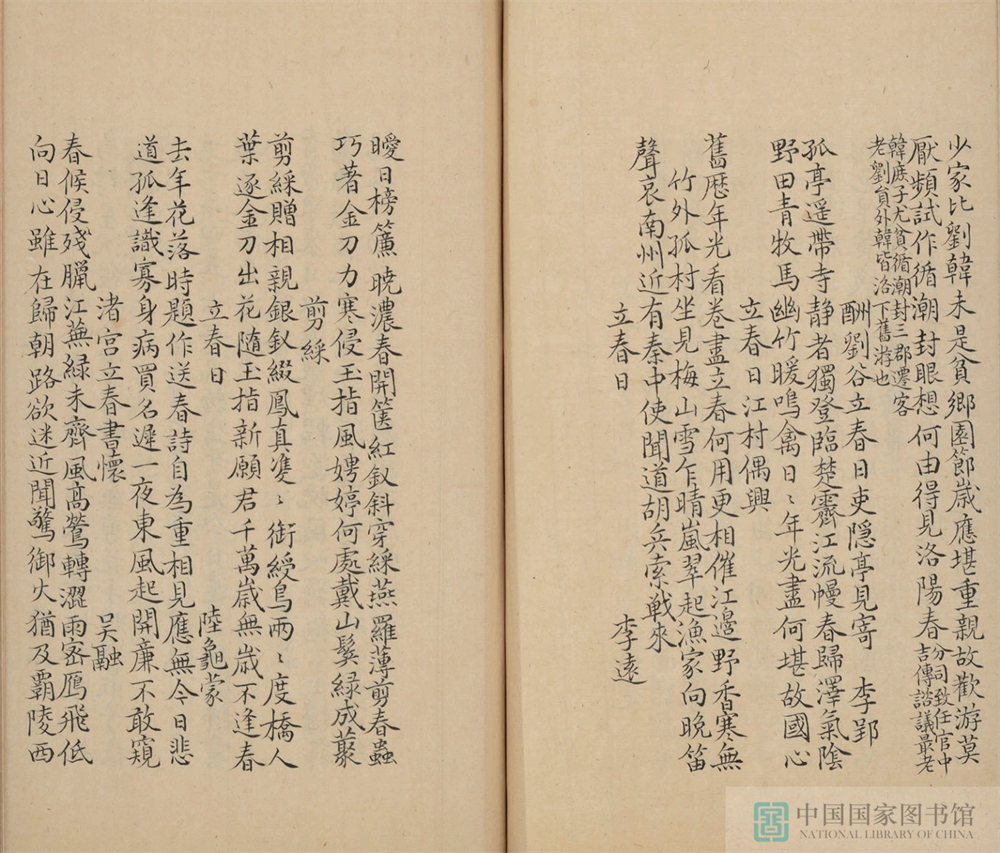 少家比劉韓未是貧鄉園節歲應堪重親故歡游莫
厭頻試作循潮封眼想何由得見洛陽春分司致仕官中
吉傅諮議最老
韓庶子尤貧循潮封三郡遷客
老劉員外韓皆洛下舊游也
酬劉谷立春日吏隱亭見寄 李郢
孤亭遥帶寺静者獨登臨楚霽江流慢春歸澤氣陰
野田青牧馬幽竹暖鳴禽日〻年光盡何堪故國心
立春日江村偶興
舊歷年光看卷盡立春何用更相催江邊野香寒無
竹外孤村坐見梅山雪乍晴嵐翠起漁家向晚笛
聲哀南州近有秦中使聞道胡兵索戰來
立春日 李遠
曖日榜簾曉濃春開篋紅釵斜穿綵燕羅薄剪春蟲
巧著金刀力寒侵玉指風娉婷何處戴山鬓緑成藂
剪綵
剪綵贈相親銀釵綴鳳真雙〻銜綬鳥兩〻度橋人
葉逐金刀出花隨玉指新願君千萬歲無歲不逢春
立春日 陸龜蒙
去年花落時題作送春詩自為重相見應無今日悲
道孤逢識寡身病買名遲一夜東風起開簾不敢窺
渚宫立春書懷 吴融
春候侵殘臘江蕪緑未齊風高鶯轉澀雨密鴈飛低
向日心雖在歸朝路欲迷近聞驚御火猶及霸陵西
中国国家图书馆
NATIONAL LIBRARY OF CHINA